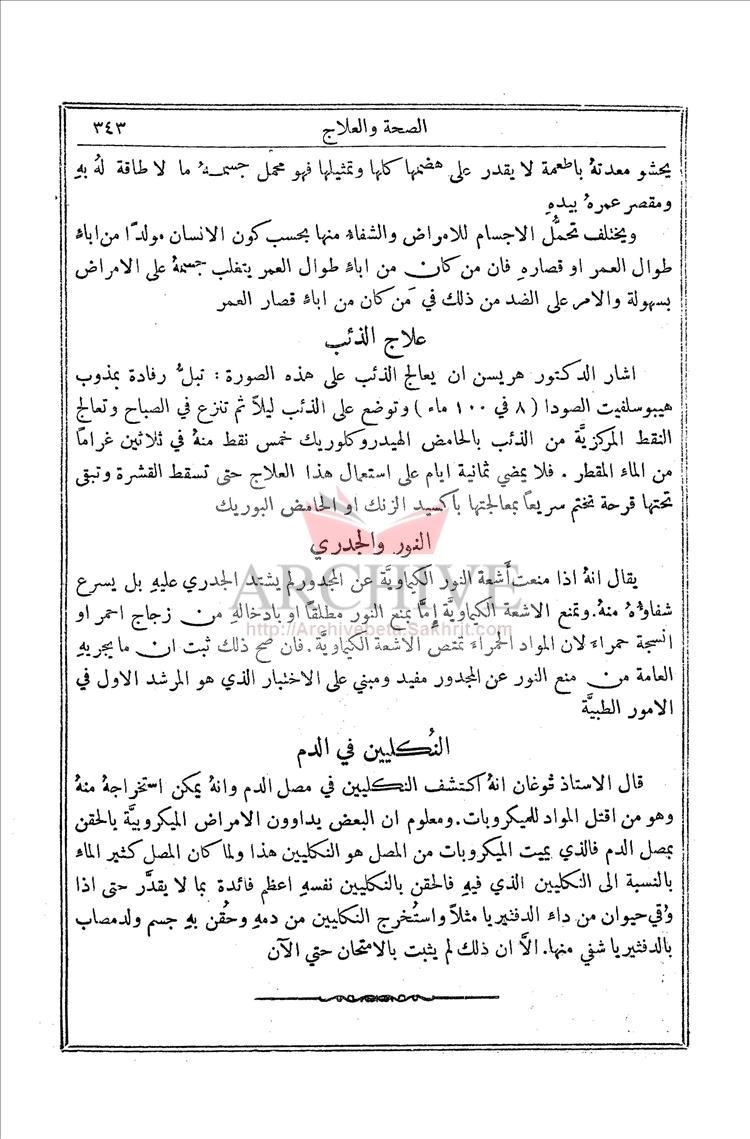 الصحة والعلاج
٣٤٣
يحشو معدتهُ باطعمة لا يقدر على هضمها كلها وتمثيلها فهو محمل جسمهُ ما لا طاقة لهُ بهِ
ومقصر عمرهُ بيدهِ
ويختلف تحمُّل الاجسام للامراض والشفاءُ منها بحسب كون الانسان مولدًا من اباءٍ
طوال العمر او قصارهِ فان من كان من اباءٍ طوال العمر يتغلب جسمهُ على الامراض
بسهولة والامر على الضد من ذلك في مَن كان من اباءٍ قصار العمر
علاج الذئب
اشار الدكتور هريسن ان يعالج الذئب على هذه الصورة : تبلُّ رفادة بمذوب
هيبوسلفيت الصودا ( ٨ في ١٠٠ ماء ) وتوضع على الذئب ليلاً ثم تنزع في الصباح وتعالج
النقط المركزيَّة من الذئب بالحامض الهيدروكلوريك خمس نقط منهُ في ثلاثين غرامًا
من الماء المقطر . فلا يمضي ثمانية ايام على استعمال هذا العلاج حتى تسقط القشرة وتبقى
تحتها قرحة تختم سريعاً بمعالجتها باكسيد الزنك او الحامض البوريك
النور والجدري
يقال انهُ اذا منعت أشعة النور الكيماويَّة عن المجدور لم يشتد الجدري عليهِ بل يسرع
شفاؤهُ منهُ. وتمنع الاشعة الكيماويَّة إِمَّا بمنع النور مطلقًا او بادخالهِ من زجاج احمر او
انسجة حمراء لان المواد الحمراء تمتص الاشعة الكيماويَّة. فان صح ذلك ثبت ان ما يجريهِ
العامة من منع النور عن المجدور مفيد ومبني على الاختبار الذي هو المرشد الاول في
الامور الطبيَّة
النُكليين في الدم
قال الاستاذ ڤوغان انهُ اكتشف النكليين في مصل الدم وانهُ يمكن استخراجهُ منهُ
وهو من اقتل المواد للميكروبات. ومعلوم ان البعض يداوون الامراض الميكروبيَّة بالحقن
بمصل الدم فالذي يميت الميكروبات من المصل هو النكليين هذا ولما كان المصل كثير الماء
بالنسبة الى النكليين الذي فيهِ فالحقن بالنكليين نفسهِ اعظم فائدة بما لا يقدَّر حتى اذا
وُقي حيوان من داء الدفثيريا مثلاً واستُخرج النكليين من دمهِ وحُقن بهِ جسم ولد مصاب
بالدفثيريا شفي منها. الاَّ ان ذلك لم يثبت بالامتحان حتي الآن
ARCHIVE
http://Archivebeta.Sakhrit.com